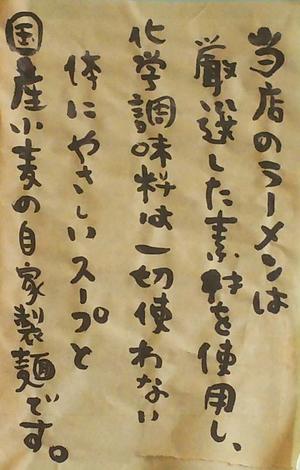 当店のラーメンは
厳選した素材を使用し、
化学調味料は一切使わない
体にやさしいスープと
国産小麦の自家製麺です。